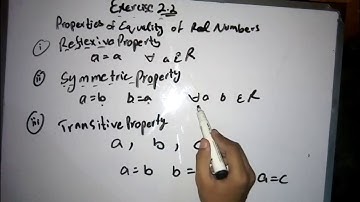 Exercise 2.2
Properties of Equality of Real Numbers
i) Reflexive Property
a = a ∀ a ε R
ii) Symmetric Property
a = b b = a ∀ a b ε R
iii) Transitive Property
a , b , c
a = b b = a = c